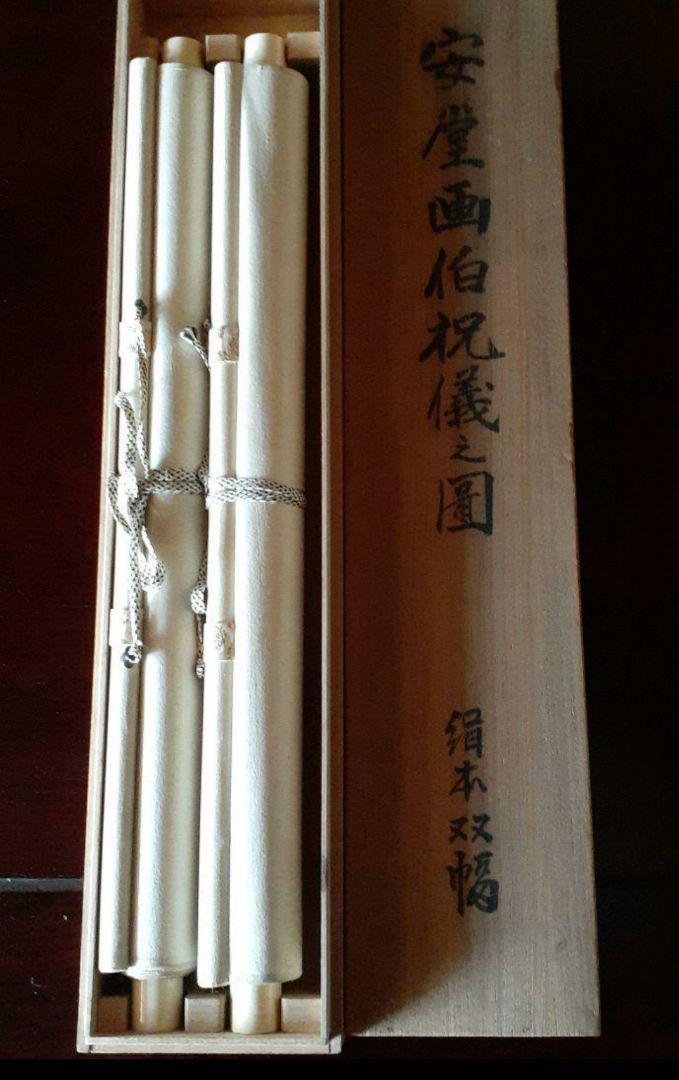 安堂画伯祝儀之圖
絹本双幅